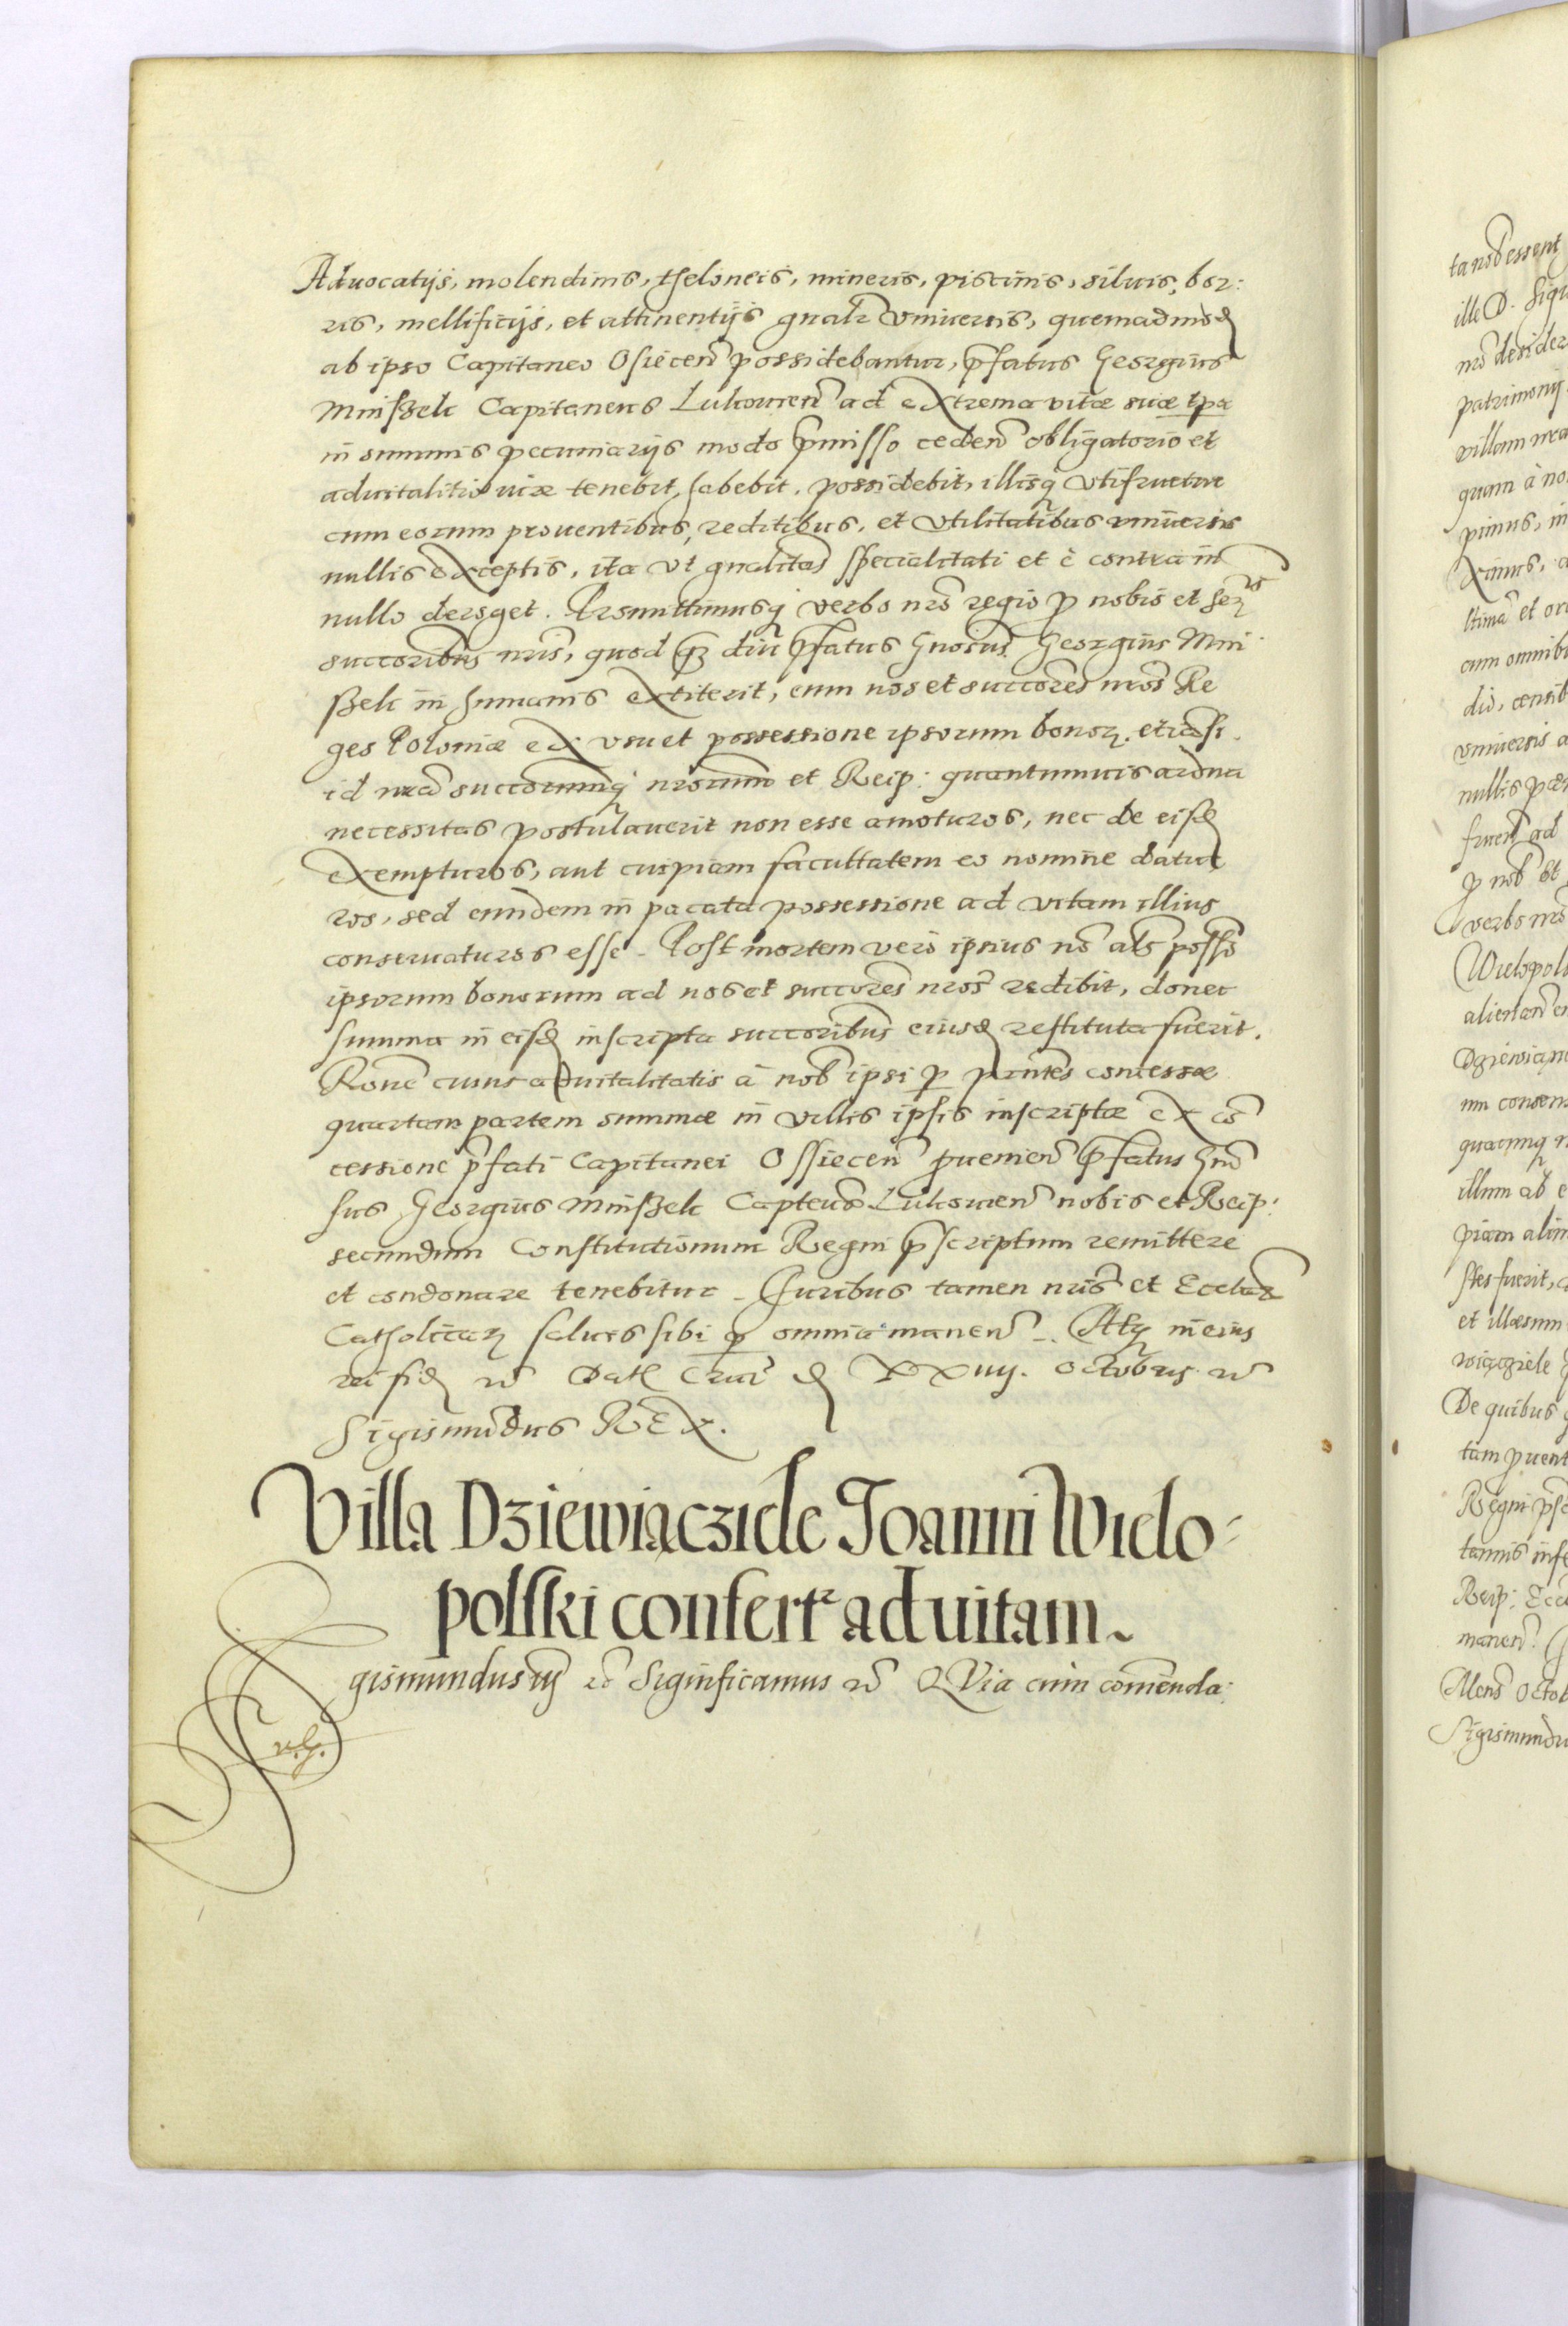 Aduocatijs, molendinis, theloneis, mineris, piscinis, siluis, bor:
ris, mellificijs, et attinentijs gnalr vniuersis, quemadmod
ab ipso Capitaneo Osiecen possidebantur, pfatus Georgius
Mniszek Capitaneus Lukowien ad extrema vitæ suæ tpa
in summis pecuniarijs modo pmisso ceden obligatorio et
aduitalitio iure tenebit, habebit, possidebit, illisq vtifruetur
cum eorum prouentibus, reditibus, et vtilitatibus vniuersis
nullis exceptis, ita vt gnalitas specialitati et è contra in
nullo deroget. Promittimusq verbo nro regio p nobis et Ser
succoribus nris, quod q diu pfatus Gnosus Georgius Mni
szek in humanis extiterit, eum nos et succores nros Re
ges Poloniæ ex vsu et possessione ipsorum bonor etiasi
id nra succorumq nrorum et Reip: quantumuis ardua
necessitas postulauerit non esse amoturos, nec de eisd
exempturos, aut cuipiam facultatem eo nomine datu
ros, sed eundem in pacata possessione ad vitam illius
conseruaturos esse. Post mortem verò ipsius no als possso
ipsorum bonorum ad nos et succores nros redibit, donec
summa in eisd inscripta succoribus eiusd restituta fuerit.
Rone cuius aduitalitatis à nob ipsi p pntes concessæ
quartam partem summæ in villis ipsis inscriptæ ex co
cessione pfati Capitanei Ossiecen puenien pfatus Gno
sus Georgius Mniszek Capteus Lukowien nobis et Reip:
secundum Constitutionum Regni pscriptum remittere
et condonare tenebitur. Juribus tamen nris et Ecclar
Catholicar saluis sibi p omnia manen. Atq in eius
rei fid Dat Crac d XXIIII. Octobris
Sigismundus REX.
Villa Dziewiączicle Joanni Wielo-
polski confertr ad uitam.
Sigismundus iij Significamus QVia cùm comenda:
tanobessent
ille D. Sigi
nro desider
patrimonij
villam nra
quam à no
pimus, in
ximus, a
ltima et or
cum omnib
dio, censib
vniuersis a
nullis pæn
fruen ad
p nob et
verbo nro
Wielopol
alienan e
Dziewiąc
nu consen
quacunq
illum ab e
piam alim
stes fuerit,
et illæsum
wiączicle
De quibus
tam puent
Regni psc
tamis infe
Reip: Ecc
manen.
Mens Octob
Sigismundu